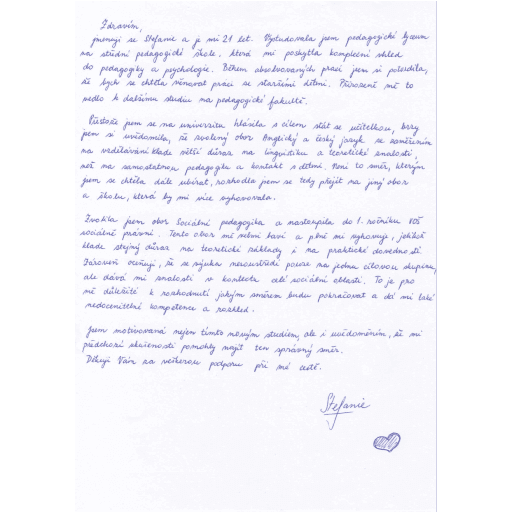 Zdravím,
jmenuji se Stefanie a je mi 21 let. Vystudovala jsem pedagogické lyceum
na střední pedagogické škole, která mi poskytla komplexní vhled
do pedagogiky a psychologie. Během absolvovaných praxí jsem si potvrdila,
že bych se chtěla věnovat práci se staršími dětmi. Přirozeně mě to
vedlo k dalšímu studiu na pedagogické fakultě.
Přestože jsem se na univerzitu hlásila s cílem stát se učitelkou, brzy
jsem si uvědomila, že zvolený obor Anglický a český jazyk se zaměřením
na vzdělávání klade větší důraz na lingvistiku a teoretické znalosti,
než na samostatnou pedagogiku a kontakt s dětmi. Není to směr, kterým
jsem se chtěla dále ubírat, rozhodla jsem se tedy přejít na jiný obor
a školu, která by mi více vyhovovala.
Zvolila jsem obor Sociální pedagogika a nastoupila do 1. ročníku VOŠ
sociálně právní. Tento obor mě velmi baví a plně mi vyhovuje, jelikož
klade stejný důraz na teoretické základy i na praktické dovednosti.
Zároveň oceňuji, že se výuka nesoustředí pouze na jednu cílovou skupinu,
ale dává mi znalosti v kontextu celé sociální oblasti. To je pro
mě důležité k rozhodnutí jakým směrem budu pokračovat a dá mi také
nedocenitelné kompetence a rozhled.
Jsem motivovaná nejen tímto novým studiem, ale i uvědoměním, že mi
předchozí zkušenosti pomohly najít ten správný směr.
Děkuji Vám za veškerou podporu při mé cestě.
Stefanie